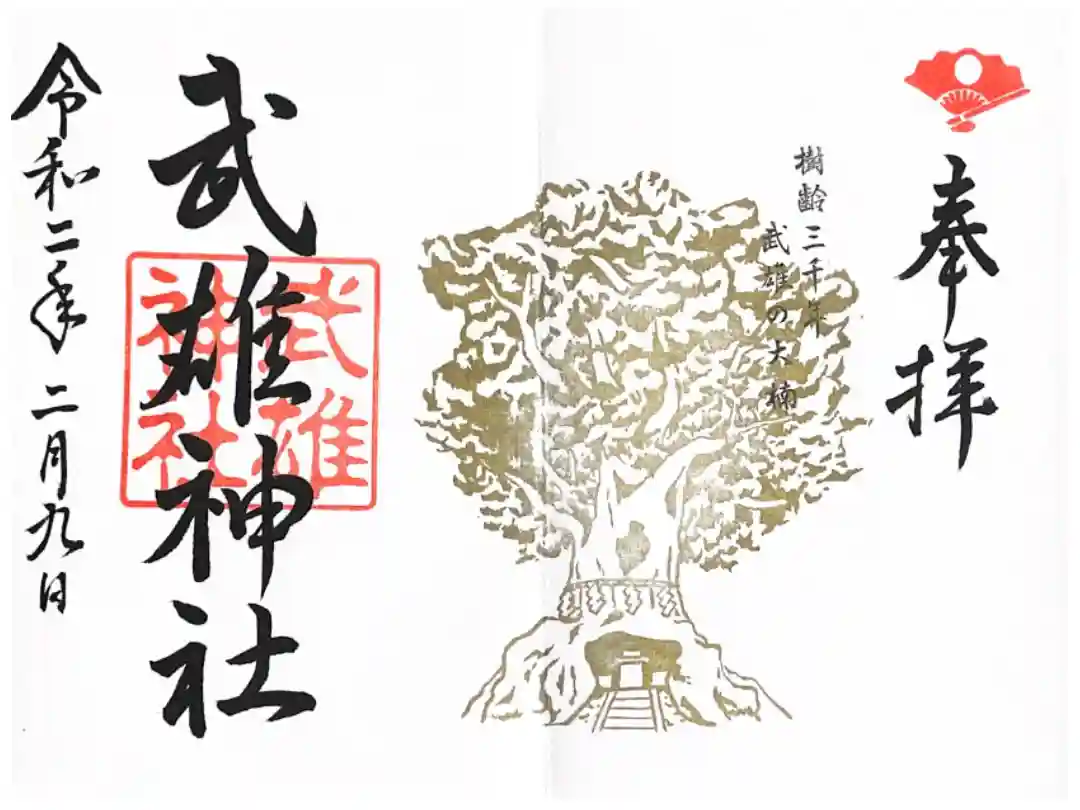 奉拝
樹齢三千年
武雄の大楠
武雄神社
武雄
神社
令和二年二月九日